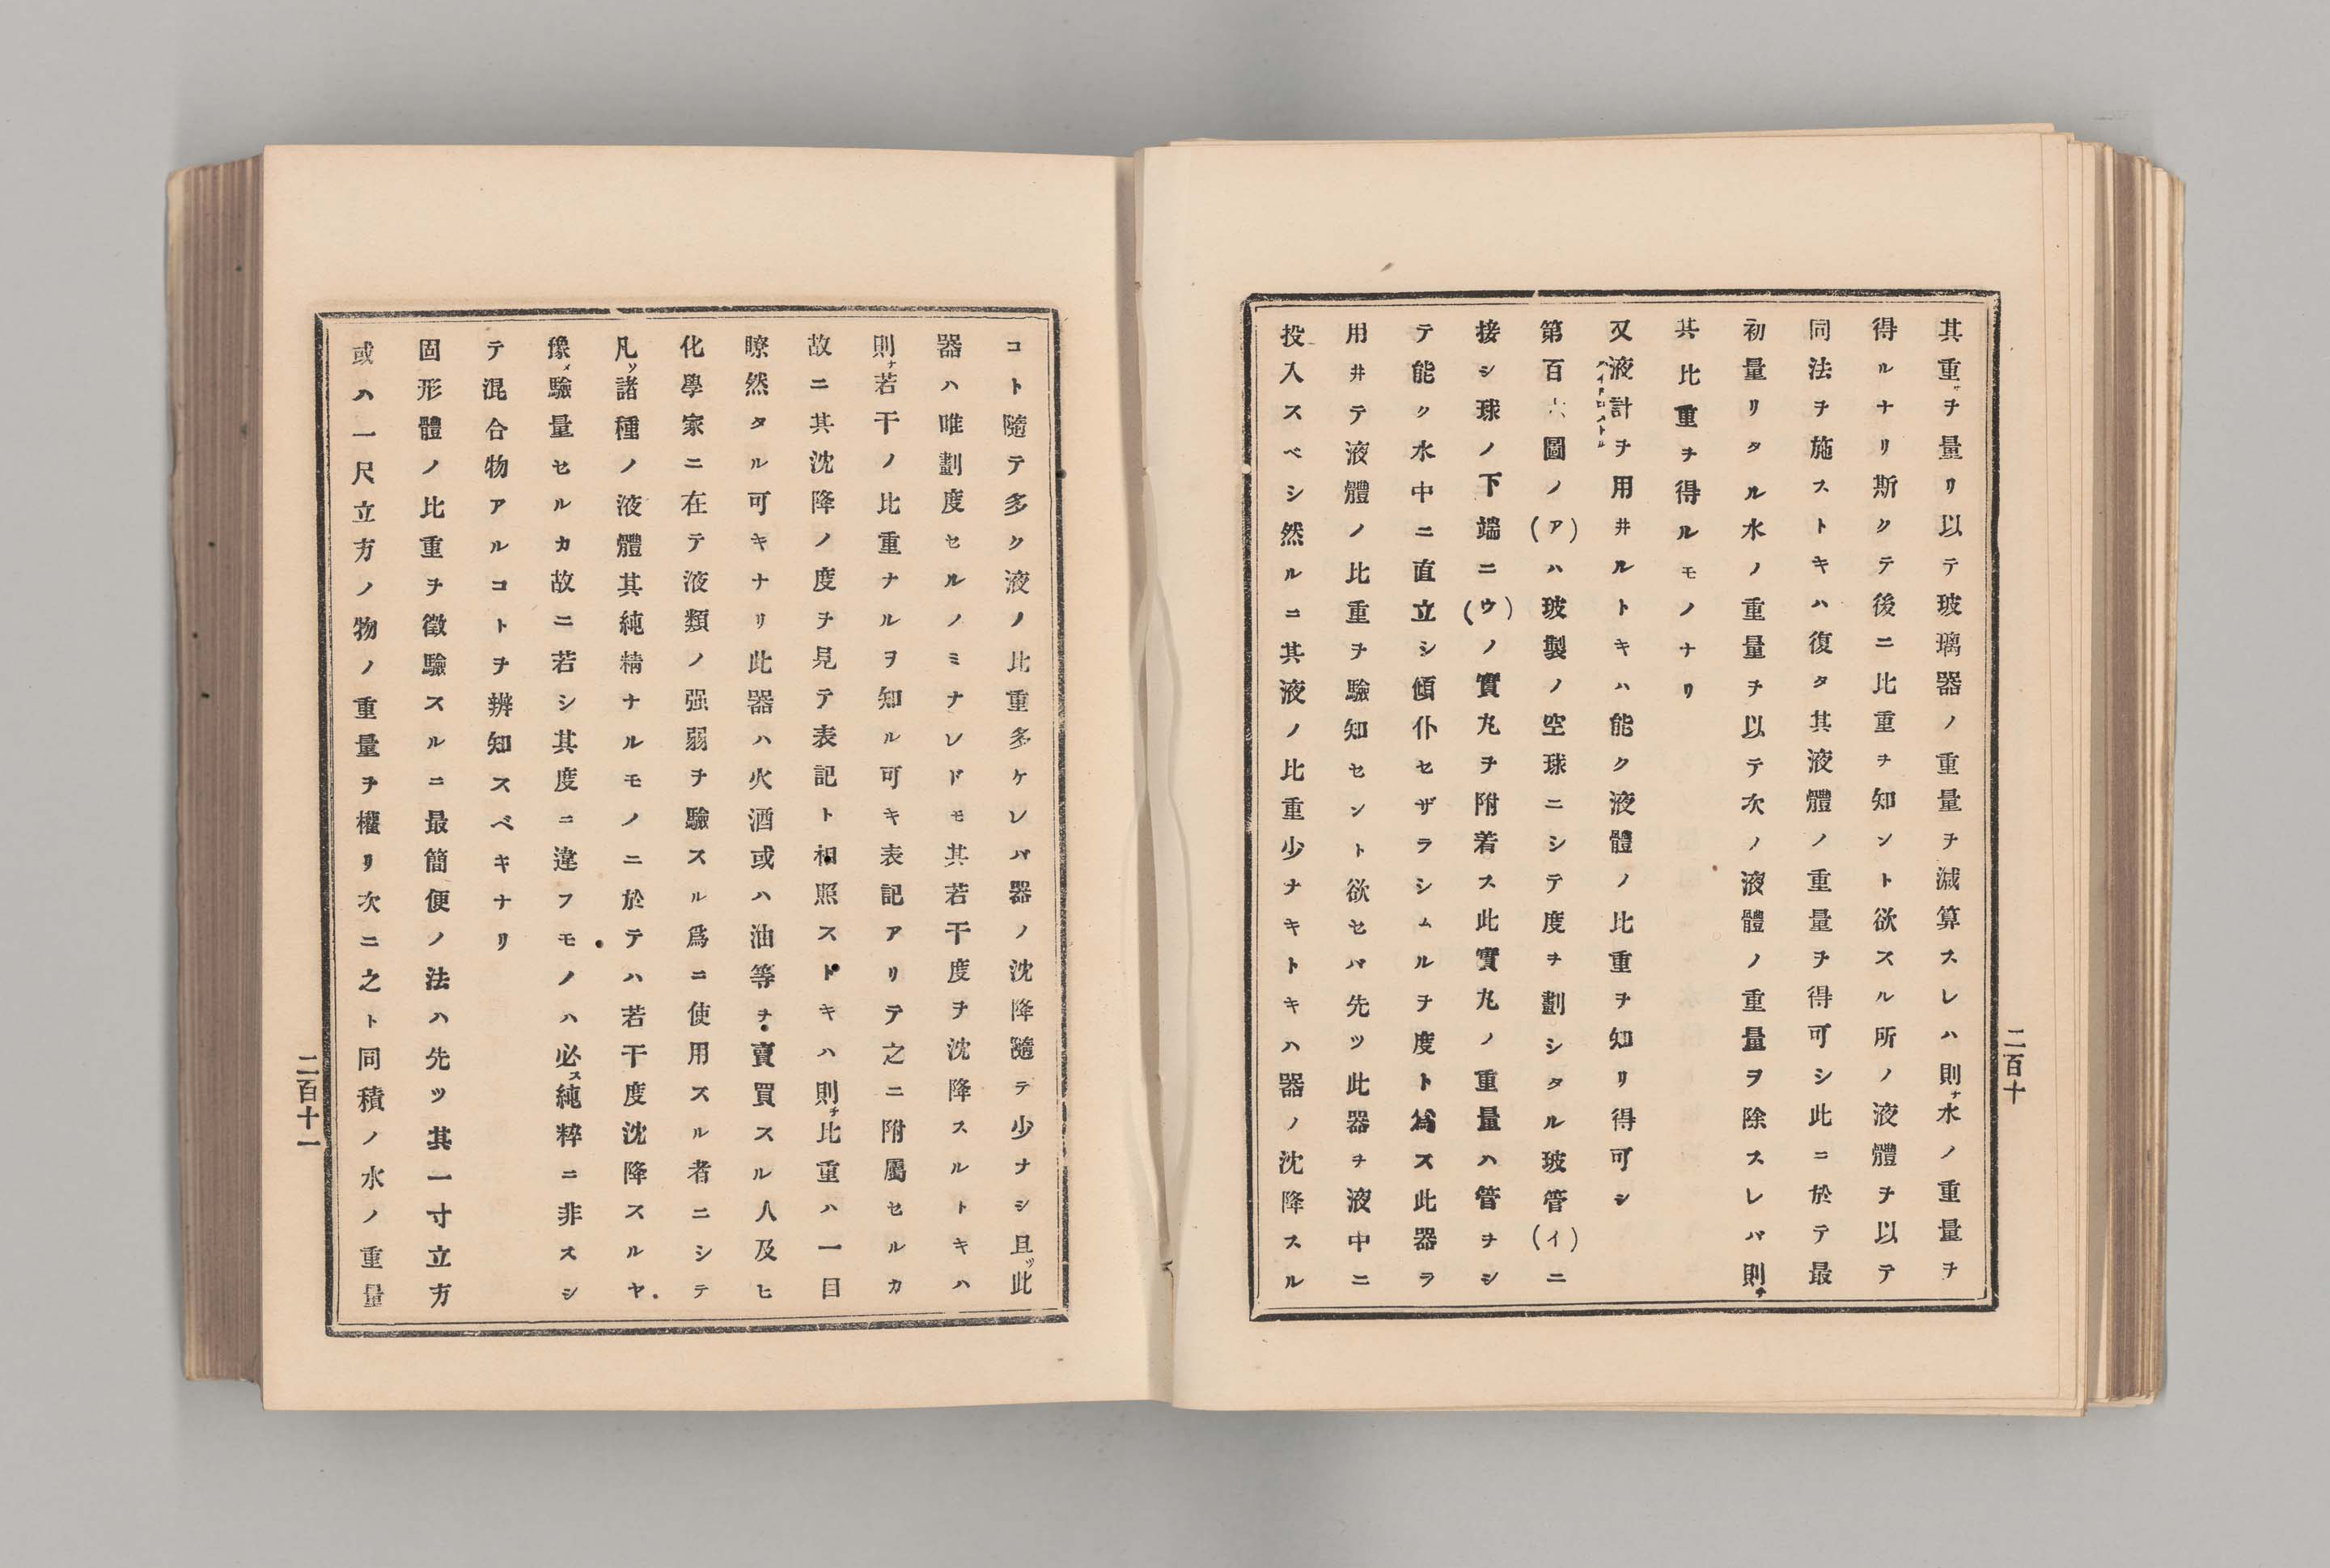 其重サヲ量リ以テ玻璃器ノ重量ヲ減算スレハ則チ水ノ重量ヲ
得ルナリ斯クテ後ニ比重ヲ知ント欲スル所ノ液體ヲ以テ
同法ヲ施ストキハ復タ其液體ノ重量ヲ得可シ此ニ於テ最
初量リタル水ノ重量ヲ以テ次ノ液體ノ重量ヲ除スレバ則チ
其比重ヲ得ルモノナリ
又液計ヲ用井ルトキハ能ク液體ノ比重ヲ知リ得可シ
第百六圖ノ(ア)ハ玻製ノ空球ニシテ度ヲ劃シタル玻管(イ)ニ
接シ球ノ下端ニ(ウ)ノ實丸ヲ附着ス此實丸ノ重量ハ管ヲシ
テ能ク水中ニ直立シ傾仆セザラシムルヲ度ト爲ス此器ヲ
用井テ液體ノ比重ヲ驗知セント欲セバ先ツ此器ヲ液中ニ
投入スベシ然ルニ其液ノ比重少ナキトキハ器ノ沈降スル
二百十
コト隨テ多ク液ノ比重多ケレバ器ノ沈降隨テ少ナシ且ツ此
器ハ唯劃度セルノミナレドモ其若干度ヲ沈降スルトキハ
則チ若干ノ比重ナルヲ知ル可キ表記アリテ之ニ附屬セルカ
故ニ其沈降ノ度ヲ見テ表記ト相照ストキハ則チ比重ハ一目
瞭然タル可キナリ此器ハ火酒或ハ油等ヲ賣買スル人及ヒ
化學家ニ在テ液類ノ强弱ヲ驗スル爲ニ使用スル者ニシテ
凡ソ諸種ノ液體其純精ナルモノニ於テハ若干度沈降スルヤ
豫メ驗量セルカ故ニ若シ其度ニ違フモノハ必ス純粹ニ非スシ
テ混合物アルコトヲ辨知スベキナリ
固形體ノ比重ヲ徵驗スルニ最簡便ノ法ハ先ツ其一寸立方
或ハ一尺立方ノ物ノ重量ヲ權リ次ニ之ト同積ノ水ノ重量
二百十一